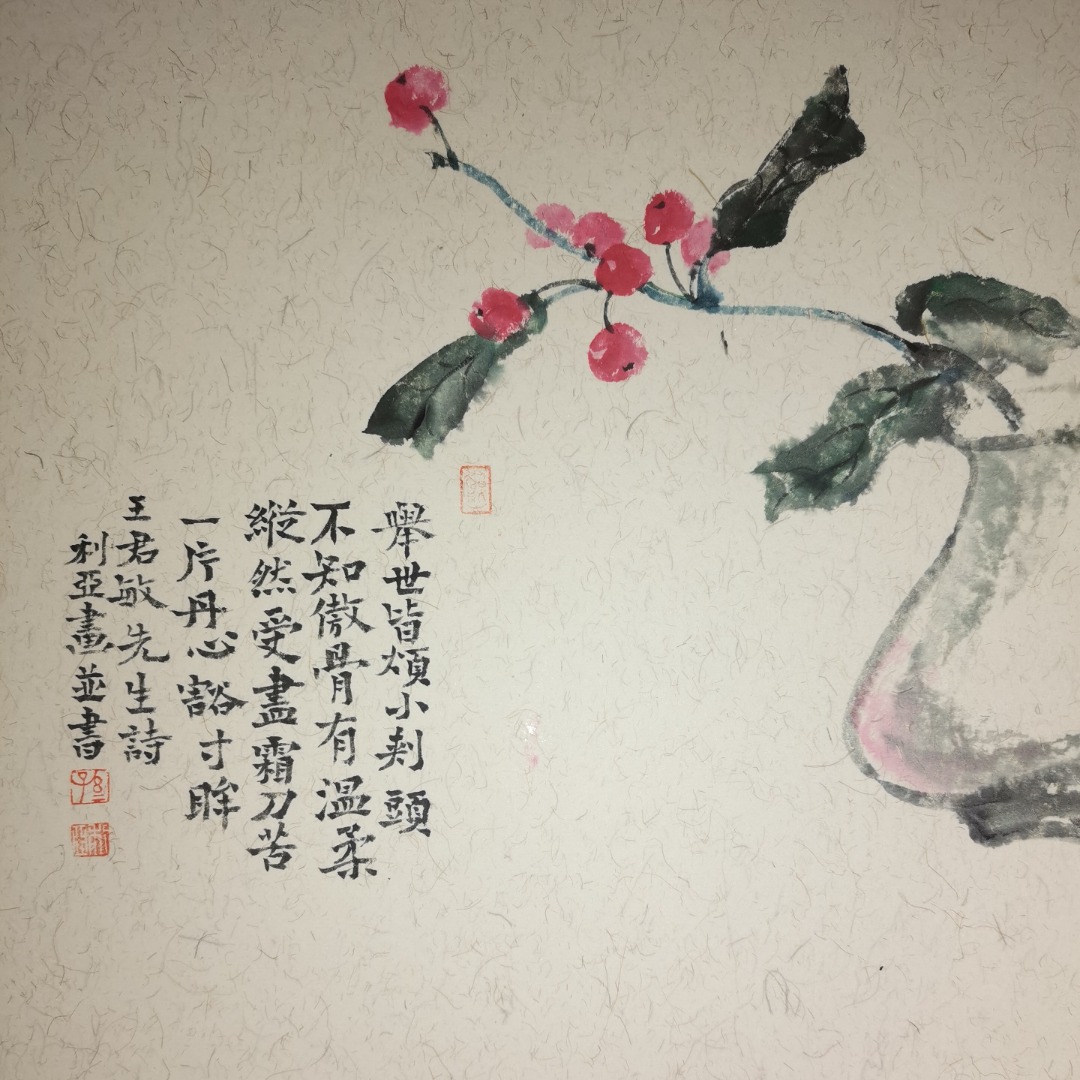 舉世皆煩小刺頭
不知傲骨有溫柔
縱然受盡霜刀苦
一片丹心豁寸眸
王君敏先生詩
利亞畫並書